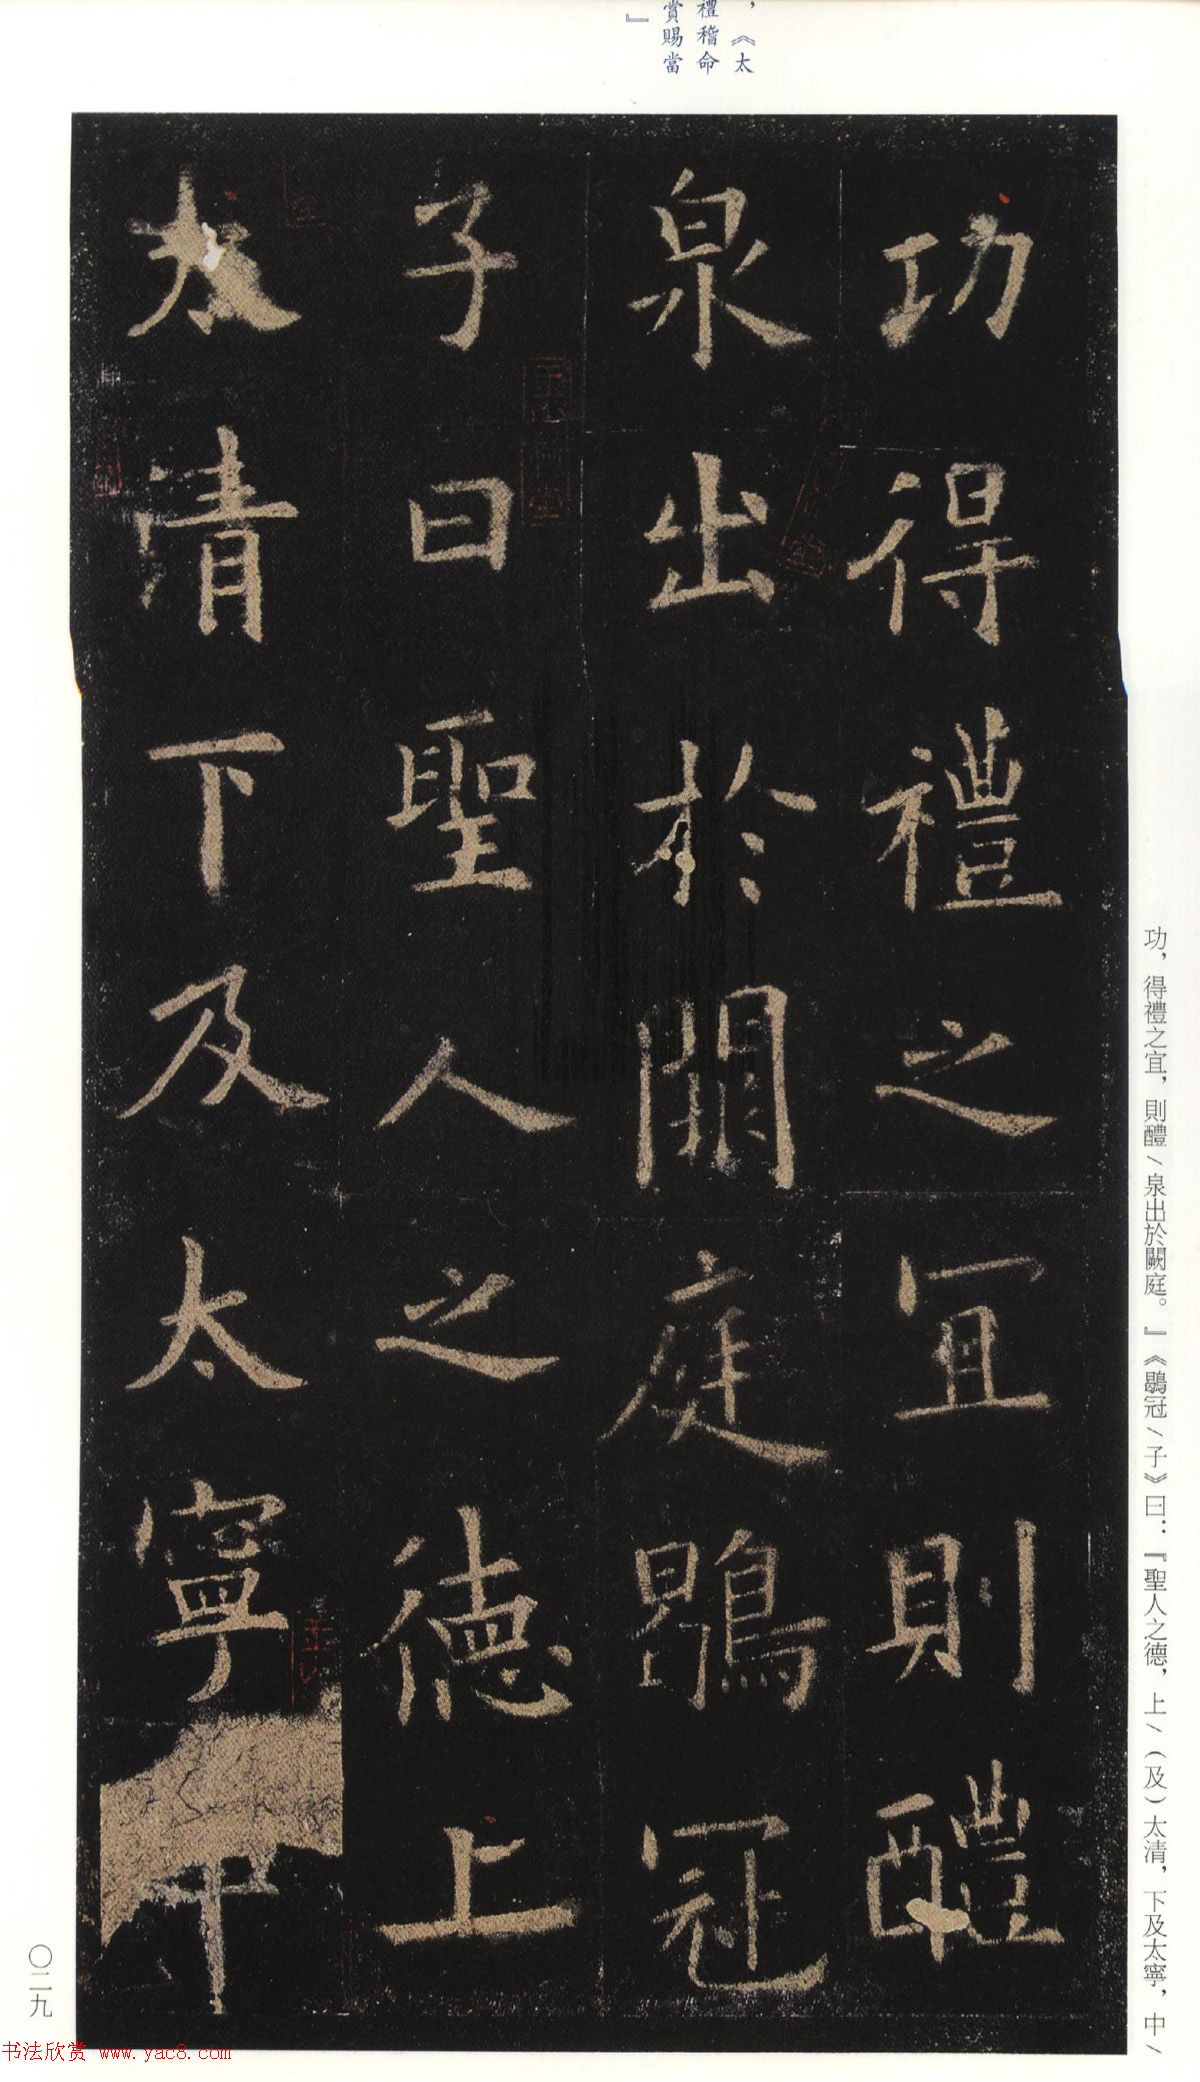 ，《太
禮稽命
賞賜當
』
功得禮之宜則醴
泉出於闕庭鶡冠
子曰聖人之德上
太清下及太寧中
功，得禮之宜，則醴/泉出於闕庭。』《鶡冠/子》曰：『聖人之德，上/（及）太清，下及太寧，中/
〇二九
书法欣赏 www.yac8.com